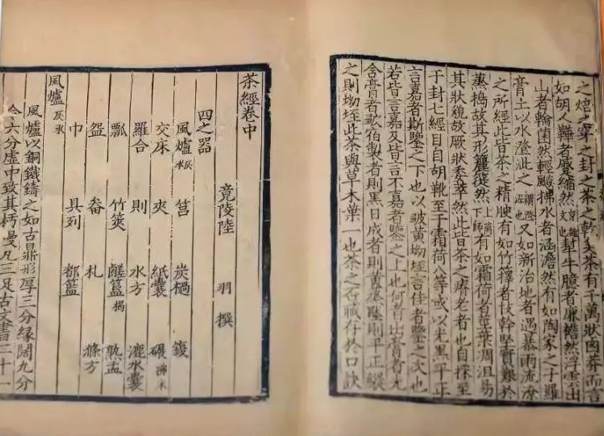 之焙之穿之封之茶之乾矣茶有千萬狀鹵莽而言
如胡人鞾者蹙縮然京錐文也犎牛臆者廉襜然浮雲出
山者輪菌然輕飈拂水者涵澹然有如陶家之子羅
膏土以水澄泚之謂澄泥也又如新治地者遇暴雨流潦
之所經此皆茶之精腴有如竹籜者枝幹堅實艱於
蒸搗故其形籭簁然上離下師有如霜荷者至葉凋沮易
其狀貌故厥狀委萃然此皆茶之瘠老者也自採至
于封七經目自胡鞾至于霜荷八等或以光黑平正
言嘉者斯鑒之下也以皺黃坳垤言佳者鑒之次也
若皆言嘉及皆言不嘉者鑒之上也何者出膏者光
含膏者皺宿製者則黑日成者則黃蒸壓則平正縱
之則坳垤此茶與草木葉一也茶之否臧存於口訣
茶經卷中
竟陵陸 羽 撰
四之器
風爐灰承 筥 炭檛 鍑
交床 夾 紙囊 碾拂末
羅合 則 水方 漉水囊
瓢 竹筴 鹺簋揭 熟盂
盌 畚 札 滌方
巾 具列 都籃
風爐灰承
風爐以銅鐵鑄之如古鼎形厚三分緣闊九分
令六分虛中致其杇墁凡三足古文書二十一